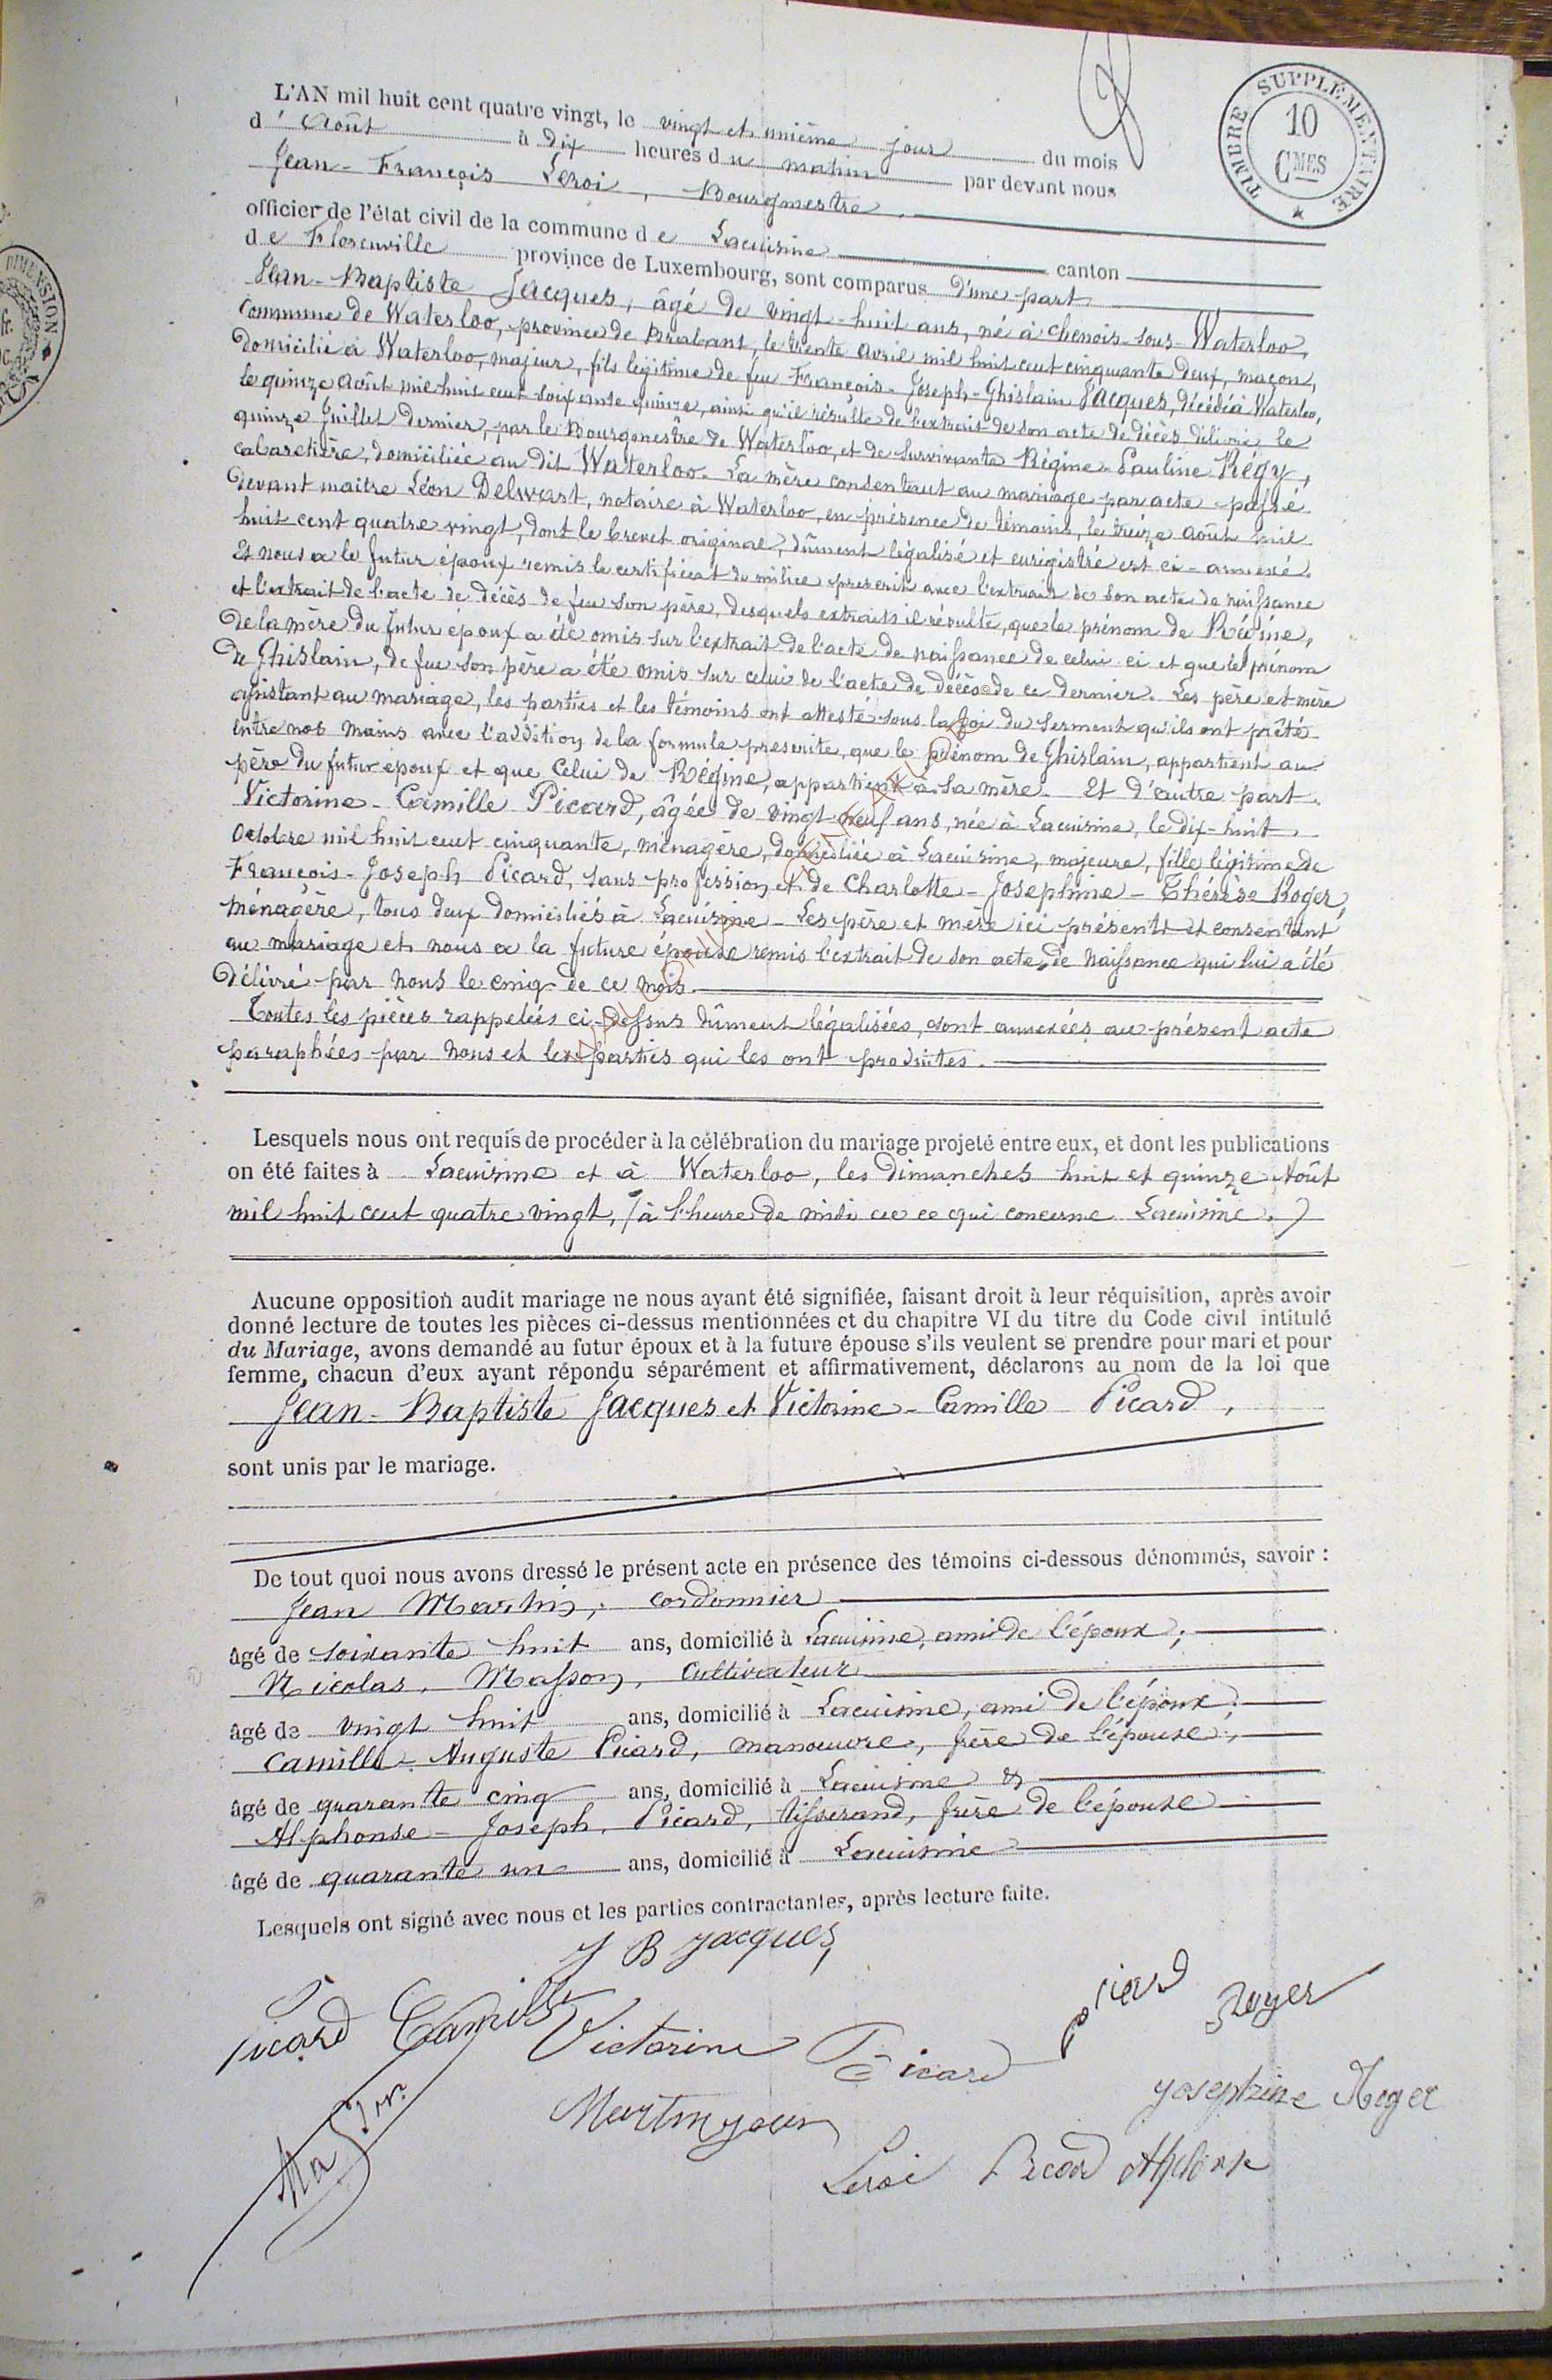 TIMBRE SUPPLÉMENTAIRE
10
CMES
DIMENSION
L'AN mil huit cent quatre vingt, le vingt et unième jour du mois
d'Août à dix heures du matin par devant nous
Jean-François Leroi, Bourgmestre,
officier de l'état civil de la commune de Lacuisine canton
de Florenville province de Luxembourg, sont comparus d'une part
Jean-Baptiste Jacques, âgé de vingt-huit ans, né à Chenois-sous-Waterloo,
commune de Waterloo, province de Brabant, le trente avril mil huit cent cinquante deux, maçon,
domicilié à Waterloo, majeur, fils légitime de feu François-Joseph-Ghislain Jacques, décédé à Waterloo,
le quinze août mil huit cent soixante quinze, ainsi qu'il résulte de l'extrait de son acte de décès délivré le
quinze Juillet dernier, par le Bourgmestre de Waterloo, et de survivante Régine-Pauline Régy,
cabaretière, domiciliée au dit Waterloo. La mère consentant au mariage par acte passé
devant maitre Léon Delwart, notaire à Waterloo, en présence de témoins, le treize août mil
huit cent quatre vingt, dont le brevet original, dûment légalisé et enrigistré est ci-annexé.
Et nous a le futur époux remis le certificat de milice prescrit avec l'extrait de son acte de naissance
et l'extrait de l'acte de décès de feu son père, desquels extraits il résulte, que le prénom de Régine,
de la mère du futur époux a été omis sur l'extrait de l'acte de naissance de celui-ci et que le prénom
de Ghislain, de feu son père a été omis sur celui de l'acte de décès de ce dernier. Les père et mère
assistant au mariage, les parties et les témoins ont attesté sous la foi du serment qu'ils ont prêté
entre nos mains avec l'addition de la formule prescrite, que le prénom de Ghislain, appartient au
père du futur époux et que celui de Régine, appartient à sa mère. Et d'autre part.
Victorine-Camille Picard, âgée de vingt-neuf ans, née à Lacuisine, le dix-huit
Octobre mil huit cent cinquante, ménagère, domiciliée à Lacuisine, majeure, fille légitime de
François-Joseph Picard, sans profession et de Charlotte-Joséphine-Thérèse Roger,
ménagère, tous deux domiciliés à Lacuisine. Les père et mère ici présents et consentant
au mariage et nous a la future épouse remis l'extrait de son acte de naissance qui lui a été
délivré par nous le cinq de ce mois.
Toutes les pièces rappelées ci-dessus dûment légalisées, sont annexées au présent acte
paraphées par nous et les parties qui les ont produites.
Lesquels nous ont requis de procéder à la célébration du mariage projeté entre eux, et dont les publications
on été faites à Lacuisine et à Waterloo, les dimanches huit et quinze Août
mil huit cent quatre vingt, (à l'heure de midi en ce qui concerne Lacuisine.)
Aucune opposition audit mariage ne nous ayant été signifiée, faisant droit à leur réquisition, après avoir
donné lecture de toutes les pièces ci-dessus mentionnées et du chapitre VI du titre du Code civil intitulé
du Mariage, avons demandé au futur époux et à la future épouse s'ils veulent se prendre pour mari et pour
femme, chacun d'eux ayant répondu séparément et affirmativement, déclarons au nom de la loi que
Jean-Baptiste Jacques et Victorine-Camille Picard,
sont unis par le mariage.
De tout quoi nous avons dressé le présent acte en présence des témoins ci-dessous dénommés, savoir :
Jean Martin, cordonnier
âgé de soixante huit ans, domicilié à Lacuisine, ami de l'époux;
Nicolas, Masson, cultivateur
âgé de vingt huit ans, domicilié à Lacuisine, ami de l'époux;
Camille-Auguste Picard, manoeuvre, frère de l'épouse;
âgé de quarante cinq ans, domicilié à Lacuisine &
Alphonse-Joseph, Picard, tisserand, frère de l'épouse
âgé de quarante un ans, domicilié à Lacuisine
Lesquels ont signé avec nous et les parties contractantes, après lecture faite.
J B Jacques
Picard Camille Victorine Picard
Picard Royer
Masson
Martin Jean
Josephine Roger
Leroi Picard Alphonse